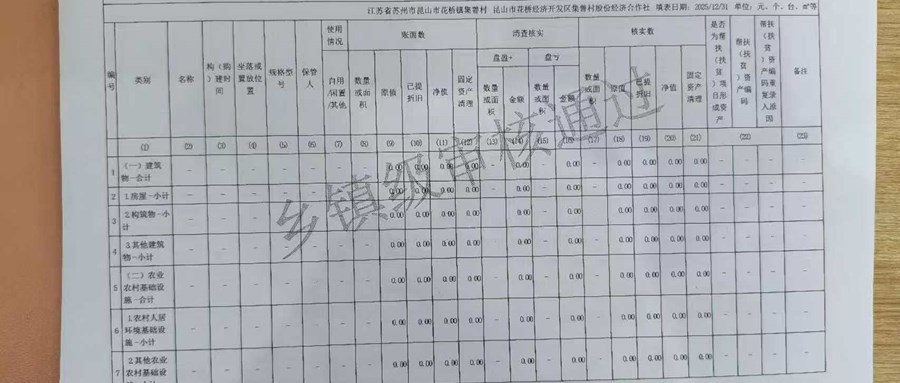 江苏省苏州市昆山市花桥镇集善村 昆山市花桥经济开发区集善村股份经济合作社 填表日期：2025/12/31 单位：元、个、台、㎡等
编号 类别 名称 构（购）建时间 坐落或置放位置 规格型号 保管人 使用情况 账面数 清查核实 核实数 是否为帮扶（扶贫）项目形成资产 帮扶（扶贫）资产编码 帮扶（扶贫）资产编码重复录入原因 备注
自用/闲置/其他 数量或面积 原值 已提折旧 净值 固定资产清理 盘盈+ 盘亏- 数量或面积 原值 已提折旧 净值 固定资产清理
数量或面积 金额 数量或面积 金额
(1) (2) (3) (4) (5) (6) (7) (8) (9) (10) (11) (12) (13) (14) (15) (16) (17) (18) (19) (20) (21) (22) (23)
1 （一）建筑物-合计 - - - - - - - 0.00 0.00 0.00 0.00 - 0.00 - 0.00 - 0.00 0.00 0.00 0.00 - - - -
2 1.房屋-小计 - - - - - - - 0.00 0.00 0.00 0.00 - 0.00 - 0.00 - 0.00 0.00 0.00 0.00 - - - -
3 2.构筑物-小计 - - - - - - - 0.00 0.00 0.00 0.00 - 0.00 - 0.00 - 0.00 0.00 0.00 0.00 - - - -
4 3.其他建筑物-小计 - - - - - - - 0.00 0.00 0.00 0.00 - 0.00 - 0.00 - 0.00 0.00 0.00 0.00 - - - -
5 （二）农业农村基础设施-合计 - - - - - - - 0.00 0.00 0.00 0.00 - 0.00 - 0.00 - 0.00 0.00 0.00 0.00 - - - -
6 1.农村人居环境基础设施-小计 - - - - - - - 0.00 0.00 0.00 0.00 - 0.00 - 0.00 - 0.00 0.00 0.00 0.00 - - - -
7 2.其他农业农村基础设施-小计 - - - - - - - 0.00 0.00 0.00 0.00 - 0.00 - 0.00 - 0.00 0.00 0.00 0.00 - - - -
乡镇级审核通过